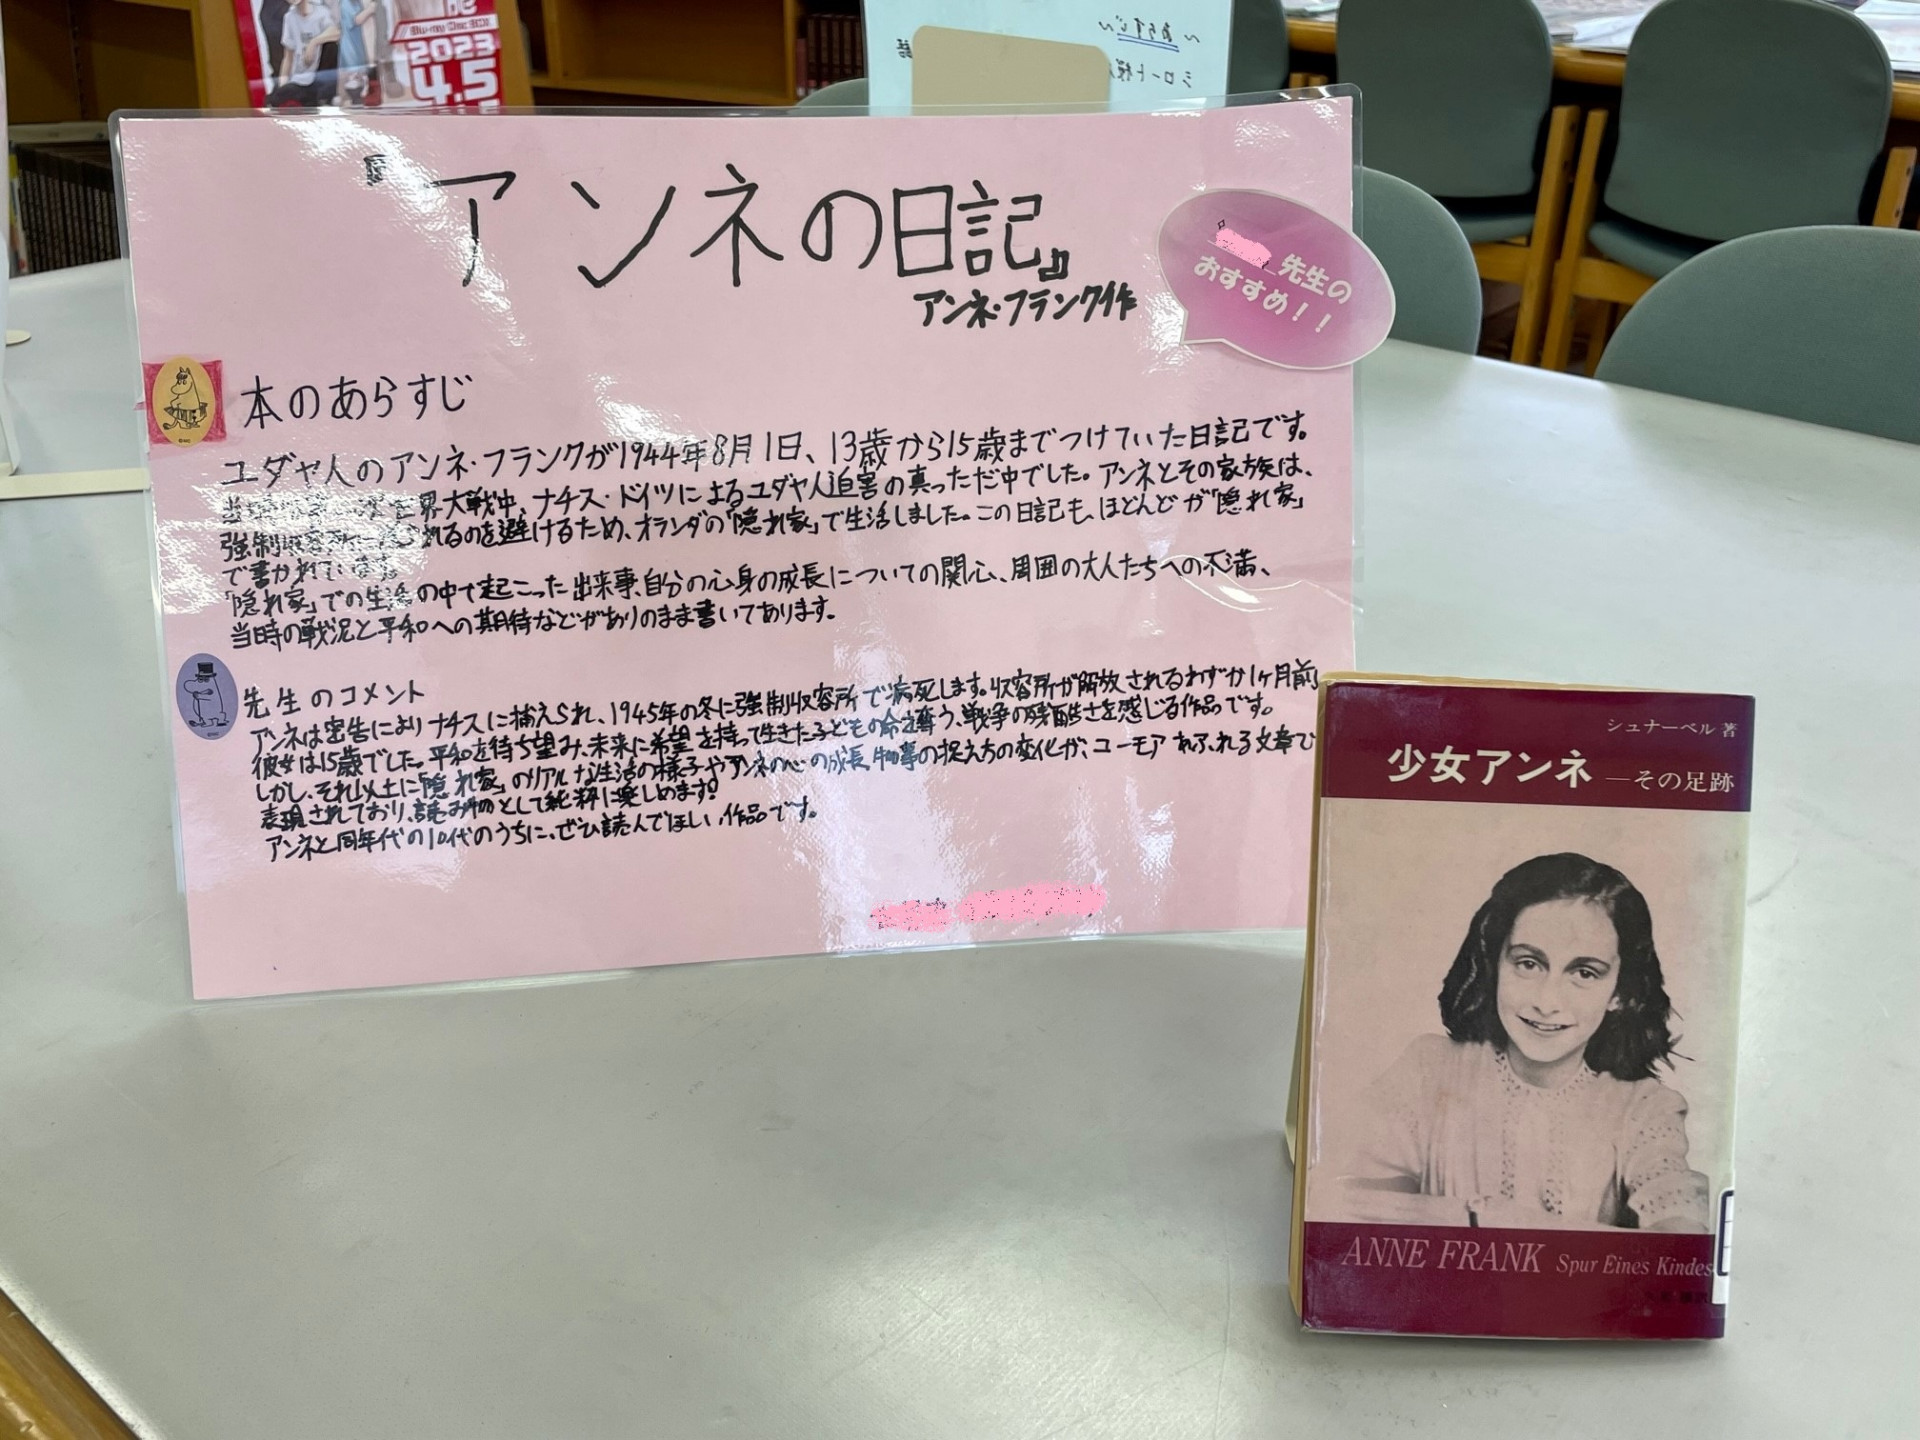 2023
4.5
～あらすじ～
『アンネの日記』
アンネ・フランク作
先生の
おすすめ！！
本のあらすじ
ユダヤ人のアンネ・フランクが1944年8月1日、13歳から15歳までつけていた日記です。
世界大戦中、ナチス・ドイツによるユダヤ人迫害の真っただ中でした。アンネとその家族は、
強制収容所 れるのを避けるため、オランダの「隠れ家」で生活しました。この日記も、ほとんどが「隠れ家」
で書かれています。
「隠れ家」での生活の中で起こった出来事、自分の心身の成長についての関心、周囲の大人たちへの不満、
当時の戦況と平和への期待などがありのまま書いてあります。
先生のコメント
アンネは密告によりナチスに捕えられ、1945年の冬に強制収容所で病死します。収容所が解放されるわずか1ヶ月前、
彼女は15歳でした。平和を待ち望み、未来に希望を持って生きた子どもの命を奪う、戦争の残酷さを感じる作品です。
しかし、それ以上に「隠れ家」のリアルな生活の様子やアンネの心の成長、物事の捉え方の変化が、ユーモアあふれる文章で
表現されており、読み物として純粋に楽しめます！
アンネと同年代の10代のうちに、ぜひ読んでほしい作品です。
シュナーベル 著
少女アンネ ―その足跡
ANNE FRANK Spur Eines Kindes